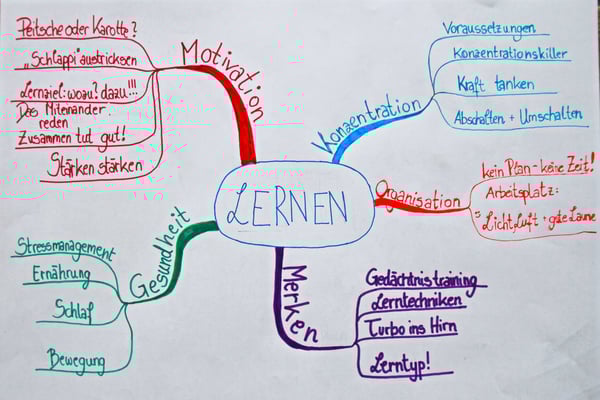 LERNEN
Motivation
Peitsche oder Karotte?
„Schlappi" austricksen
Lernziel: wozu? dazu!!!
Das Miteinander
reden
Zusammen tut gut!
Stärken stärken
Konzentration
Voraussetzungen
Konzentrationskiller
Kraft tanken
Abschalten + Umschalten
Organisation
kein Plan - keine Zeit!
Arbeitsplatz:
Licht, Luft + gute Laune
Merken
Gedächtnistraining
Lerntechniken
Turbo ins Hirn
Lerntyp!
Gesundheit
Stressmanagement
Ernährung
Schlaf
Bewegung